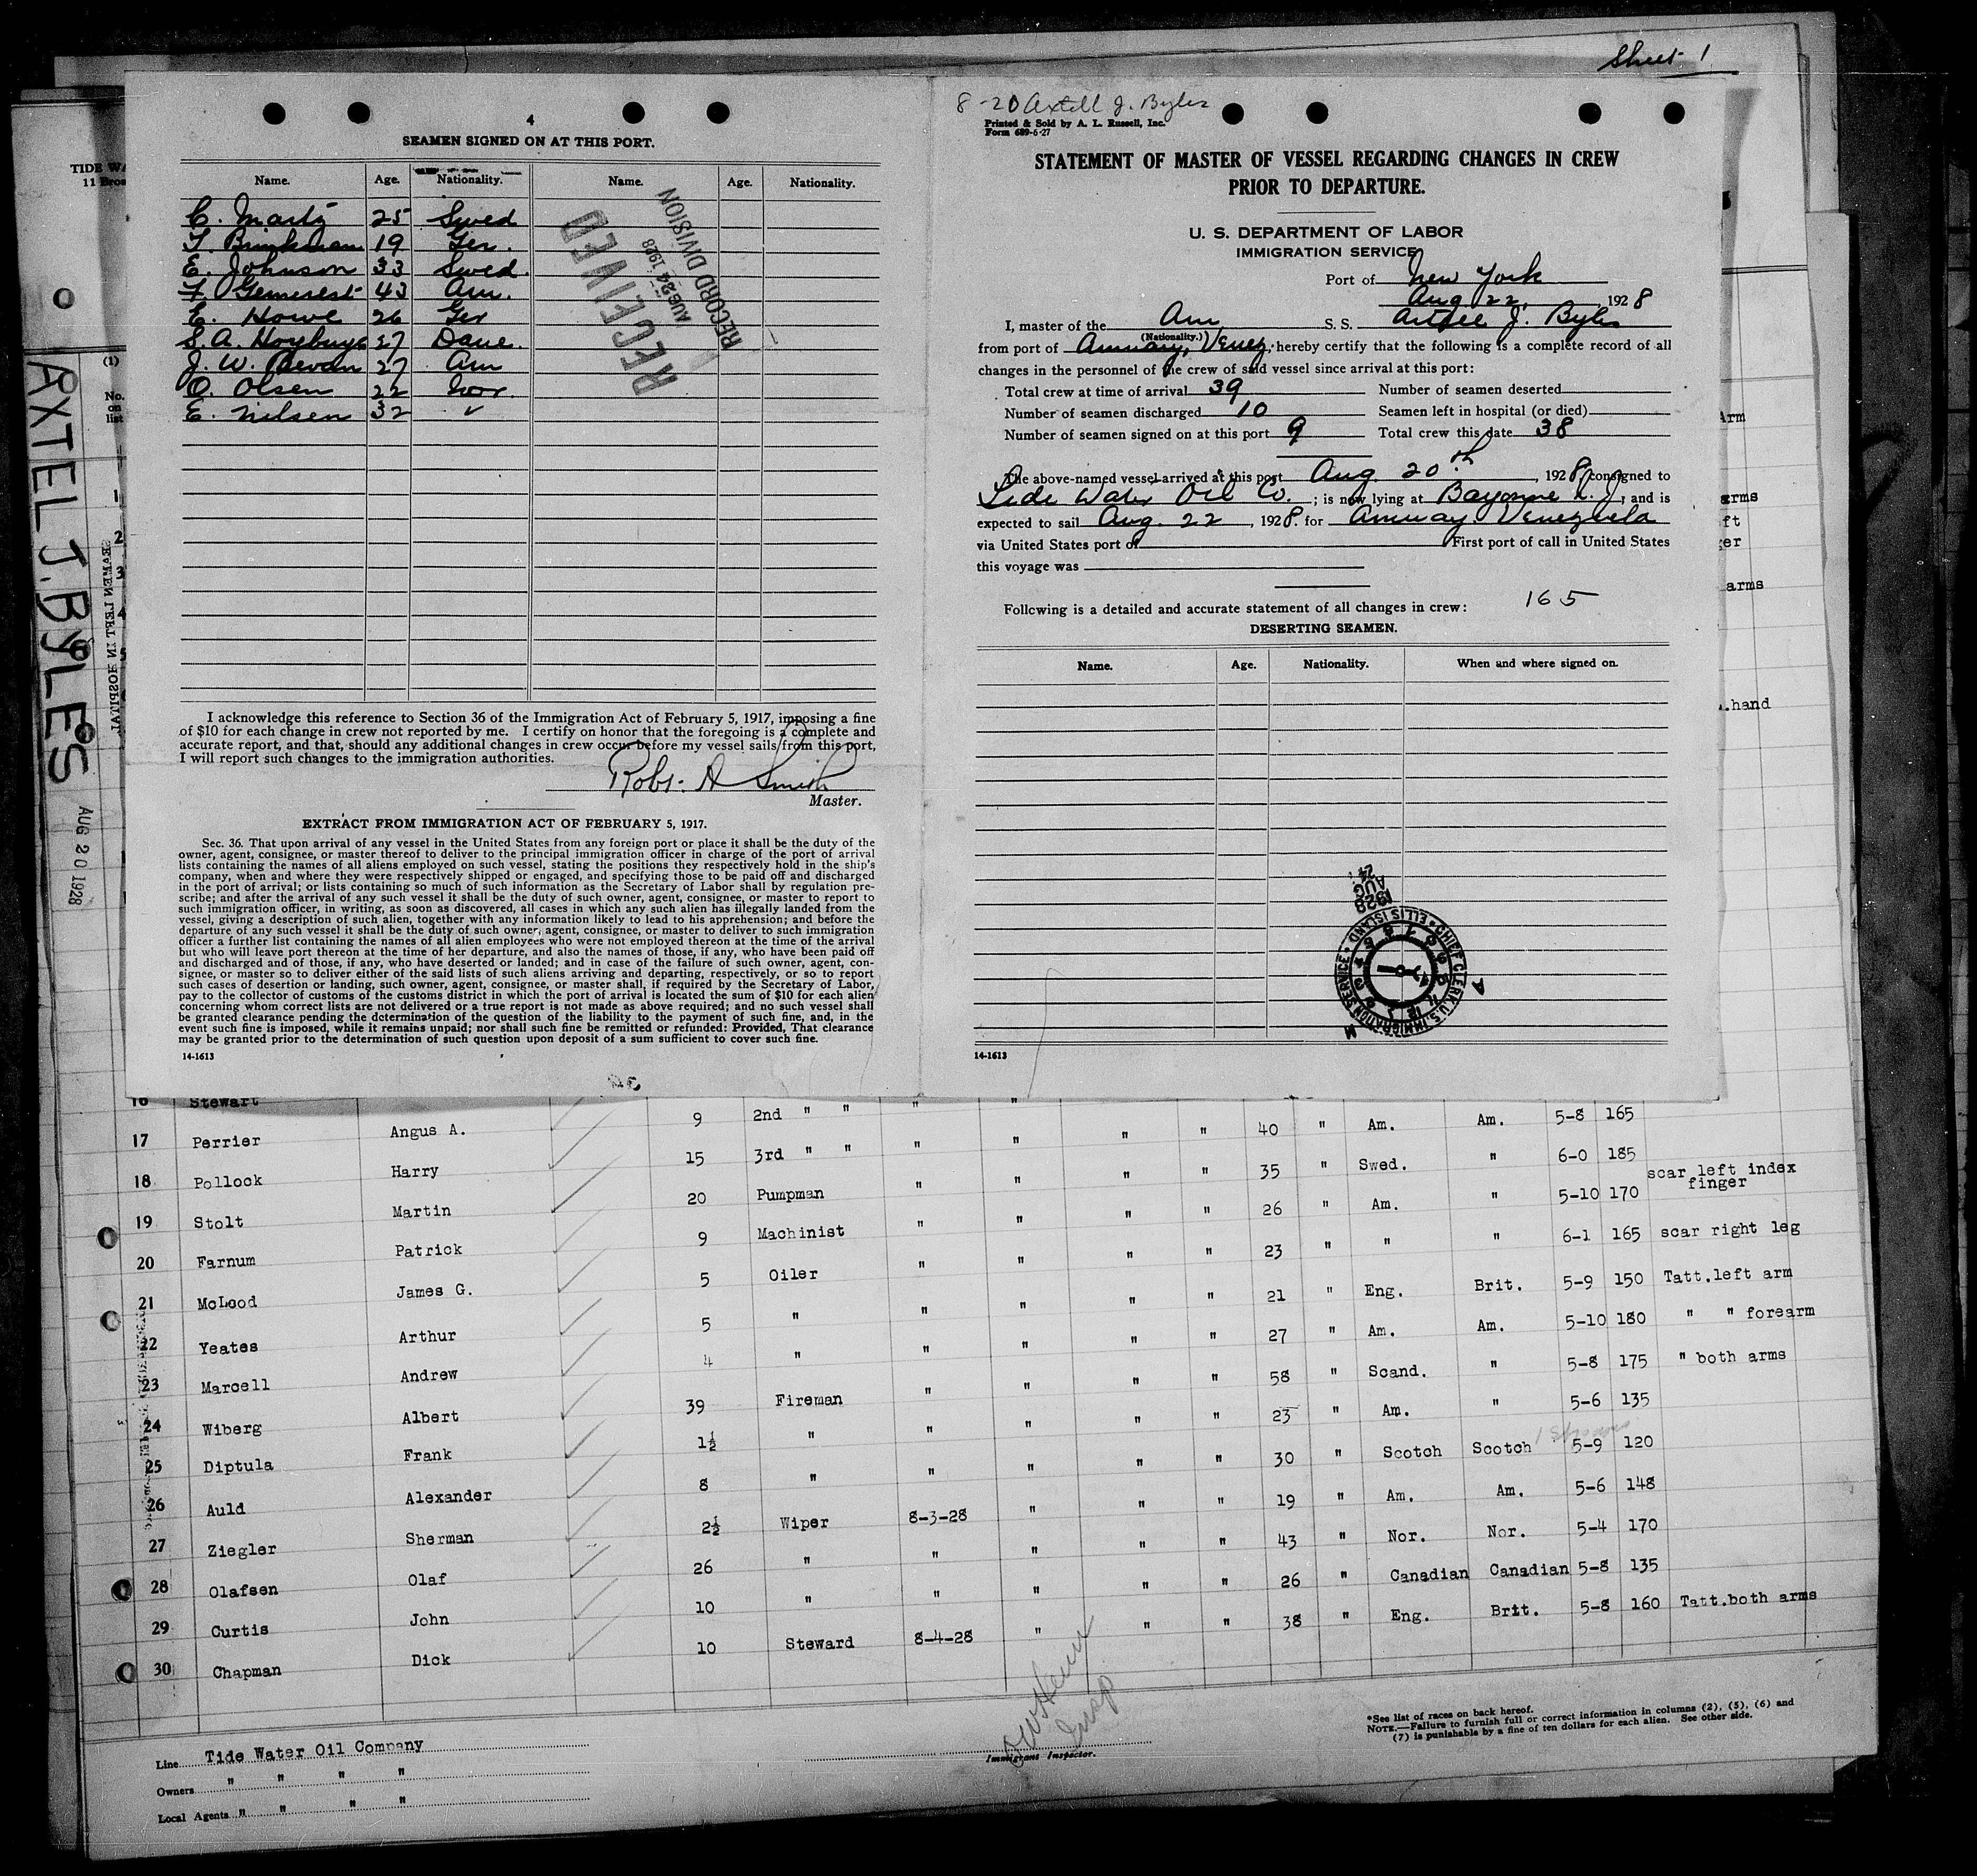 Sheet 1
4
SEAMEN SIGNED ON AT THIS PORT.
Name. Age. Nationality. Name. Age. Nationality.
C. 25 Swed
Brinkman 19 Ger.
E. Johnson 33 Swed.
43 Am.
E. Howe 26 Ger
S. A. 27 Dane.
J. W. Bevan 27 Am
O. Olsen 22 Nor.
E. Nilsen 32 ✓
RECEIVED
AUG 24 1928
RECORD DIVISION
I acknowledge this reference to Section 36 of the Immigration Act of February 5, 1917, imposing a fine
of $10 for each change in crew not reported by me. I certify on honor that the foregoing is a complete and
accurate report, and that, should any additional changes in crew occur before my vessel sails from this port,
I will report such changes to the immigration authorities.
Robt. A Smith
Master.
EXTRACT FROM IMMIGRATION ACT OF FEBRUARY 5, 1917.
Sec. 36. That upon arrival of any vessel in the United States from any foreign port or place it shall be the duty of the
owner, agent, consignee, or master thereof to deliver to the principal immigration officer in charge of the port of arrival
lists containing the names of all aliens employed on such vessel, stating the positions they respectively hold in the ship's
company, when and where they were respectively shipped or engaged, and specifying those to be paid off and discharged
in the port of arrival; or lists containing so much of such information as the Secretary of Labor shall by regulation pre-
scribe; and after the arrival of any such vessel it shall be the duty of such owner, agent, consignee, or master to report to
such immigration officer, in writing, as soon as discovered, all cases in which any such alien has illegally landed from the
vessel, giving a description of such alien, together with any information likely to lead to his apprehension; and before the
departure of any such vessel it shall be the duty of such owner, agent, consignee, or master to deliver to such immigration
officer a further list containing the names of all alien employees who were not employed thereon at the time of the arrival
but who will leave port thereon at the time of her departure, and also the names of those, if any, who have been paid off
and discharged and of those, if any, who have deserted or landed; and in case of the failure of such owner, agent, con-
signee, or master so to deliver either of the said lists of such aliens arriving and departing, respectively, or so to report
such cases of desertion or landing, such owner, agent, consignee, or master shall, if required by the Secretary of Labor,
pay to the collector of customs of the customs district in which the port of arrival is located the sum of $10 for each alien
concerning whom correct lists are not delivered or a true report is not made as above required; and no such vessel shall
be granted clearance pending the determination of the question of the liability to the payment of such fine, and, in the
event such fine is imposed, while it remains unpaid; nor shall such fine be remitted or refunded: Provided, That clearance
may be granted prior to the determination of such question upon deposit of a sum sufficient to cover such fine.
14-1613
8-20 Axtell J. Byles
Printed & Sold by A. L. Russell, Inc.
Form 689-6-27
STATEMENT OF MASTER OF VESSEL REGARDING CHANGES IN CREW
PRIOR TO DEPARTURE.
U. S. DEPARTMENT OF LABOR
IMMIGRATION SERVICE
Port of New York
Aug 22, 1928
I, master of the Am S. S. J. Byles
(Nationality.)
from port of Amuay, Venez, hereby certify that the following is a complete record of all
changes in the personnel of the crew of said vessel since arrival at this port:
Total crew at time of arrival 39 Number of seamen deserted
Number of seamen discharged 10 Seamen left in hospital (or died)
Number of seamen signed on at this port 9 Total crew this date 38
The above-named vessel arrived at this port Aug. 20th, 1928, consigned to
Tide Water Oil Co.; is now lying at Bayonne N. J., and is
expected to sail Aug. 22, 1928. for Amuay Venezuela
via United States port of First port of call in United States
this voyage was
Following is a detailed and accurate statement of all changes in crew: 165
DESERTING SEAMEN.
Name. Age. Nationality. When and where signed on.
1928
AUG
24
CHIEF CLERK U.S. IMMIGRATION SERVICE • ELLIS ISLAND •
14-1613
TIDE WA
11 Broa
(1)
No.
on
list
1
2
3
4
5
SEAMEN LEFT IN HOSPITAL
AXTEL J. BYLES
AUG 20 1928
Arm
arms
ft
ger
arms
.hand
16 Stewart Angus A. 9 2nd " " " " " " 40 " Am. Am. 5-8 165
17 Perrier Harry 15 3rd " " " " " " 35 " Swed. " 6-0 185
18 Pollock Martin 20 Pumpman " " " " 26 " Am. " 5-10 170 scar left index finger
19 Stolt Patrick 9 Machinist " " " " 23 " " " 6-1 165 scar right leg
20 Farnum James G. 5 Oiler " " " " 21 " Eng. Brit. 5-9 150 Tatt.left arm
21 McLeod Arthur 5 " " " " " 27 " Am. Am. 5-10 180 " " forearm
22 Yeates Andrew 4 " " " " " 58 " Scand. " 5-8 175 " both arms
23 Marcell Albert 39 Fireman " " " " 23 " Am. " 5-6 135
24 Wiberg Frank 1½ " " " " " 30 " Scotch Scotch 5-9 120
25 Diptula Alexander 8 " " " " " 19 " Am. Am. 5-6 148
26 Auld Sherman 2½ Wiper 8-3-28 " " " 43 " Nor. Nor. 5-4 170
27 Ziegler Olaf 26 " " " " " 26 " Canadian Canadian 5-8 135
28 Olafsen John 10 " " " " " 38 " Eng. Brit. 5-8 160 Tatt.both arms
29 Curtis Dick 10 Steward 8-4-28 " " "
30 Chapman
Line Tide Water Oil Company
Owners " " " "
Local Agents " " " "
Insp
Immigrant Inspector.
*See list of races on back hereof.
NOTE.—Failure to furnish full or correct information in columns (2), (5), (6) and
(7) is punishable by a fine of ten dollars for each alien. See other side.